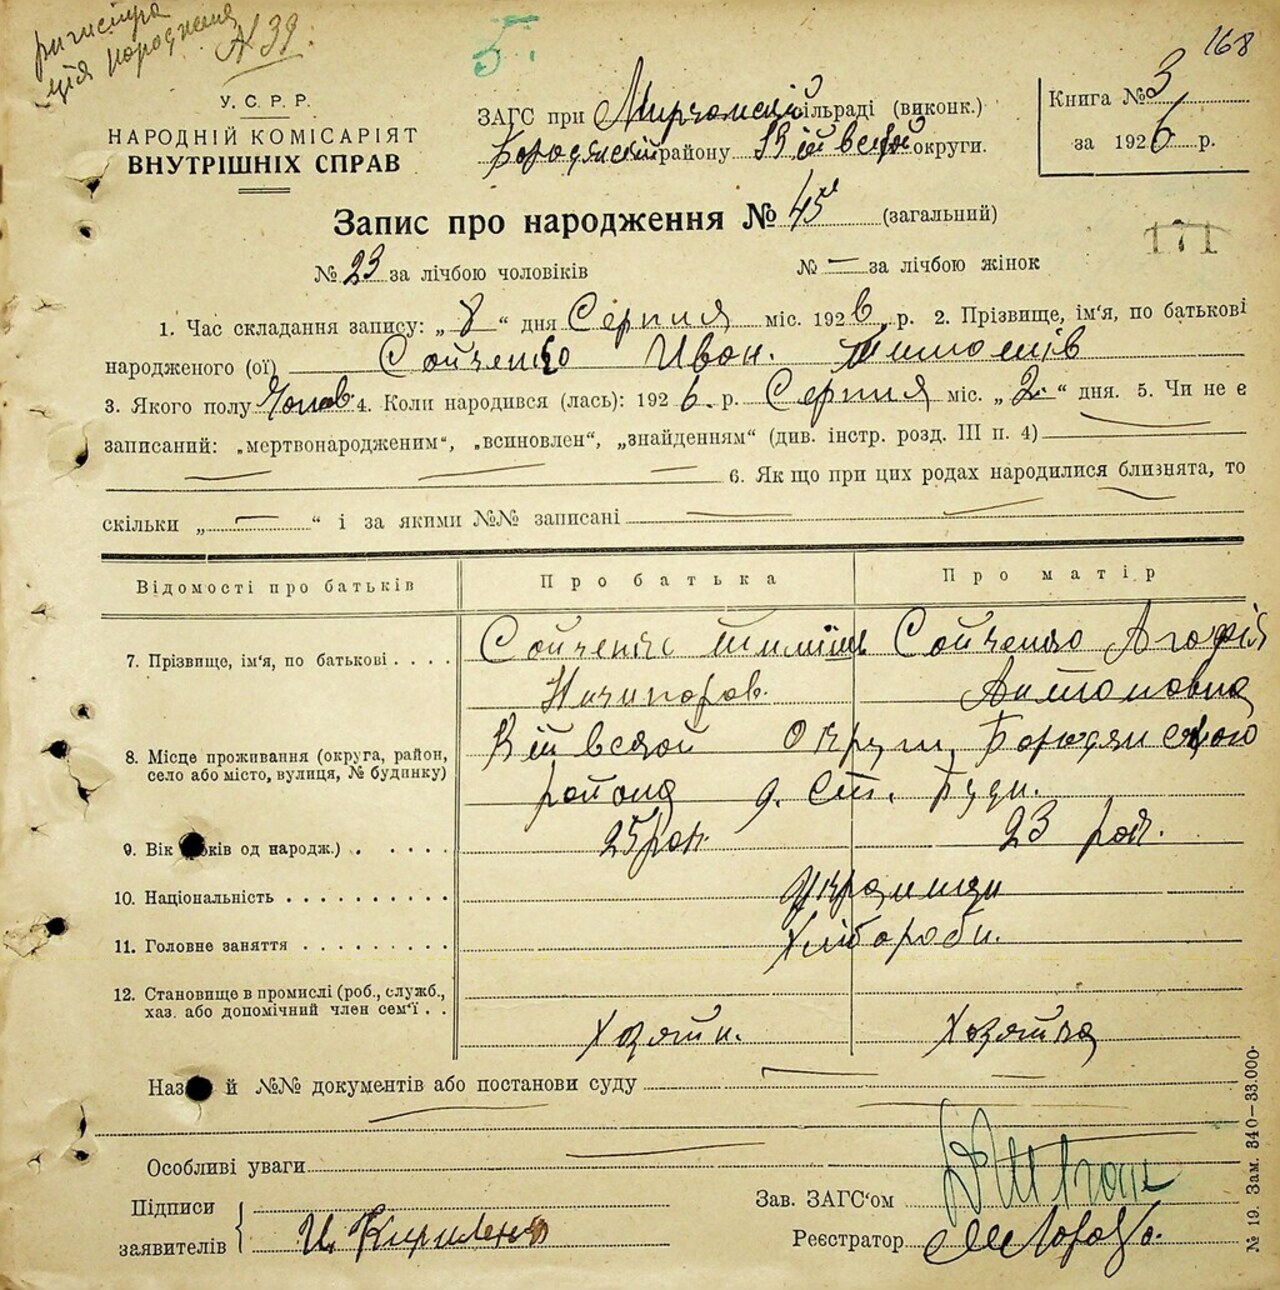 № 39.
168
5.
У. С. Р. Р.
НАРОДНІЙ КОМІСАРІЯТ
ВНУТРІШНІХ СПРАВ
ЗАГС при сільраді (виконк.)
району округи.
Книга № 3
за 1926 р.
Запис про народження № 45 (загальний)
171
№ 23 за лічбою чоловіків № — за лічбою жінок
1. Час складання запису: „ 8 “ дня Серпня міс. 1926 р. 2. Прізвище, ім‘я, по батькові
народженого (ої) Сойченко Иван.
3. Якого полу Чолов. 4. Коли народився (лась): 1926. р. Серпня міс. „ 2. “ дня. 5. Чи не є
записаний: „мертвонародженим“, „всиновлен“, „знайденням“ (див. інстр. розд. III п. 4)
6. Як що при цих родах народилися близнята, то
скільки „ — “ і за якими №№ записані
Відомості про батьків
Про батька
Про матір
7. Прізвище, ім‘я, по батькові . . . .
Сойченко
Ничипоров.
Сойченко Агафія
Антоновна
8. Місце проживання (округа, район,
село або місто, вулиця, № будинку)
Округи, Бородянского
района Буди.
9. Вік од народж.) . . . . . .
25 рок.
23 рок.
10. Національність . . . . . . . . . .
Украинци
11. Головне заняття . . . . . . . . .
Хлібороби.
12. Становище в промислі (роб., служб.,
хаз. або допомічний член сем‘ї . .
Хозяин.
Хозяйка
й №№ документів або постанови суду
Особливі уваги
Підписи
заявителів
Зав. ЗАГС‘ом
Реєстратор
№ 19. Зам. 340—33.000.